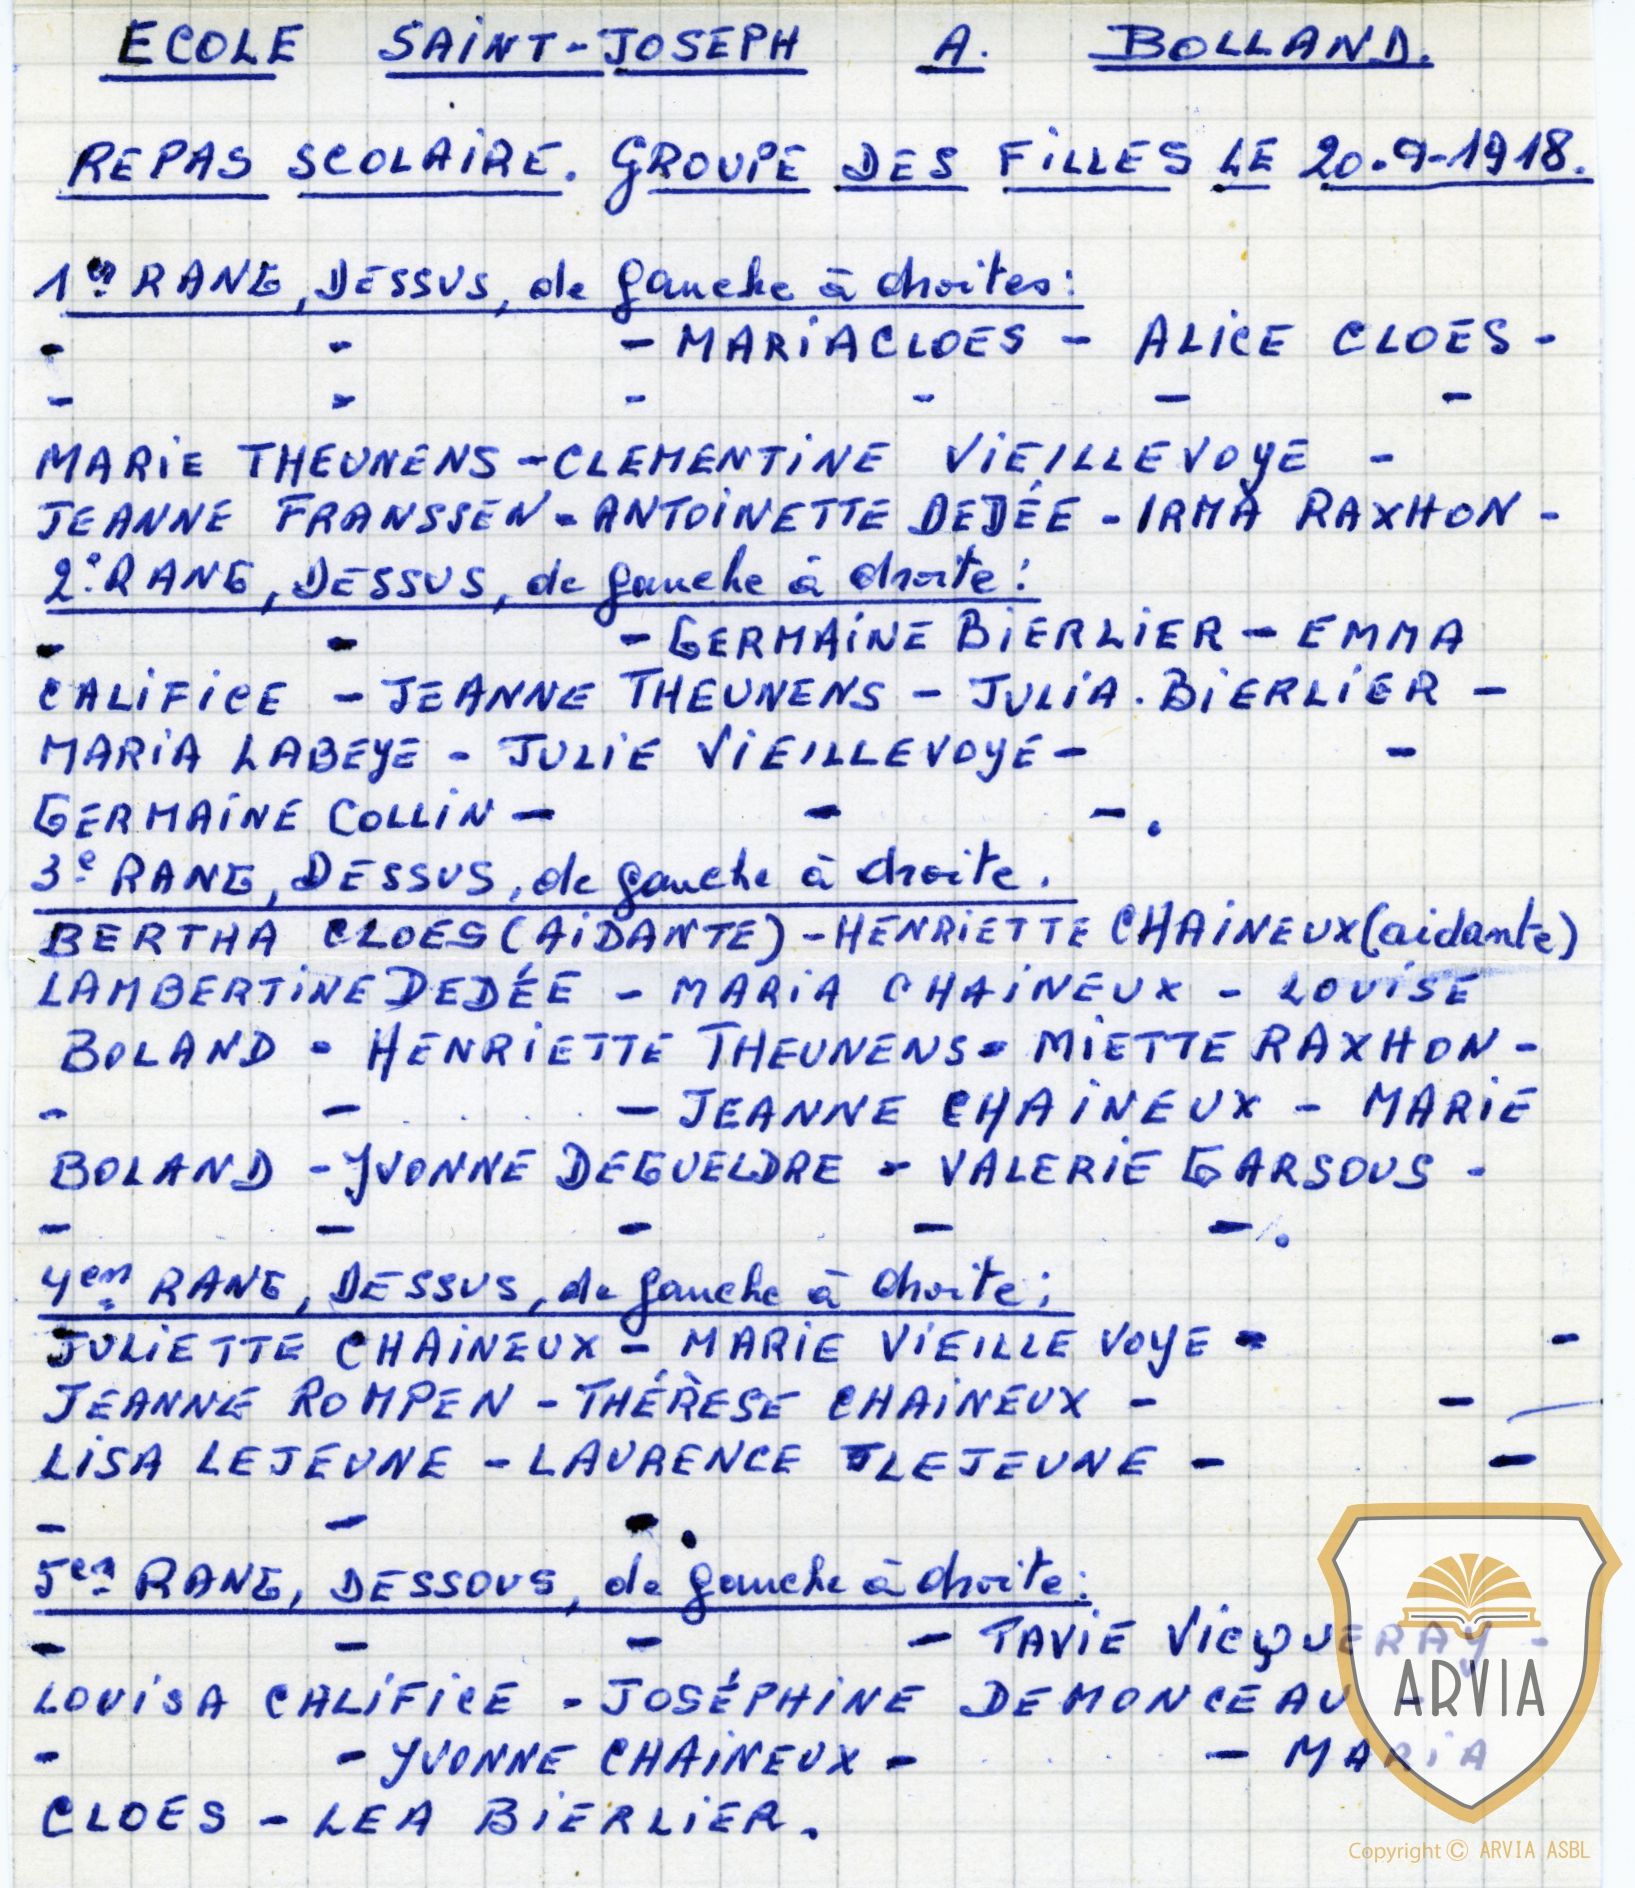 ECOLE SAINT-JOSEPH A. BOLLAND.
REPAS SCOLAIRE. GROUPE DES FILLES LE 20-9-1918.
1er RANG, DESSUS, de gauche à droites:
- - - MARIA CLOES - ALICE CLOES -
- - - - - -
MARIE THEUNENS - CLEMENTINE VIEILLEVOYE -
JEANNE FRANSSEN - ANTOINETTE DEDÉE - IRMA RAXHON -
2e RANG, DESSUS, de gauche à droite:
- - - GERMAINE BIERLIER - EMMA
CALIFICE - JEANNE THEUNENS - JULIA. BIERLIER -
MARIA LABEYE - JULIE VIEILLEVOYE - -
GERMAINE COLLIN - - - .
3e RANG, DESSUS, de gauche à droite.
BERTHA CLOES (AIDANTE) - HENRIETTE CHAINEUX (aidante)
LAMBERTINE DEDÉE - MARIA CHAINEUX - LOUISE
BOLAND - HENRIETTE THEUNENS - MIETTE RAXHON -
- - - JEANNE CHAINEUX - MARIE
BOLAND - YVONNE DEGUELDRE - VALERIE GARSOUS -
- - - - - .
4em RANG, DESSUS, de gauche à droite;
JULIETTE CHAINEUX - MARIE VIEILLEVOYE - -
JEANNE ROMPEN - THÉRÈSE CHAINEUX - -
LISA LEJEUNE - LAURENCE LEJEUNE - -
- - - .
5em RANG, DESSOUS, de gauche à droite:
- - - - TAVIE VICQUERAY -
LOUISA CALIFICE - JOSÉPHINE DEMONCEAU -
- - YVONNE CHAINEUX - - MARIA
CLOES - LEA BIERLIER.
ARVIA
Copyright © ARVIA ASBL